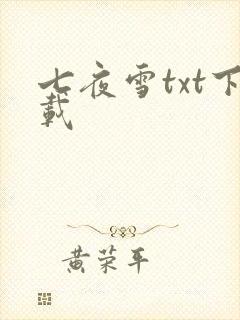 七夜雪txt下
載
黄荣平